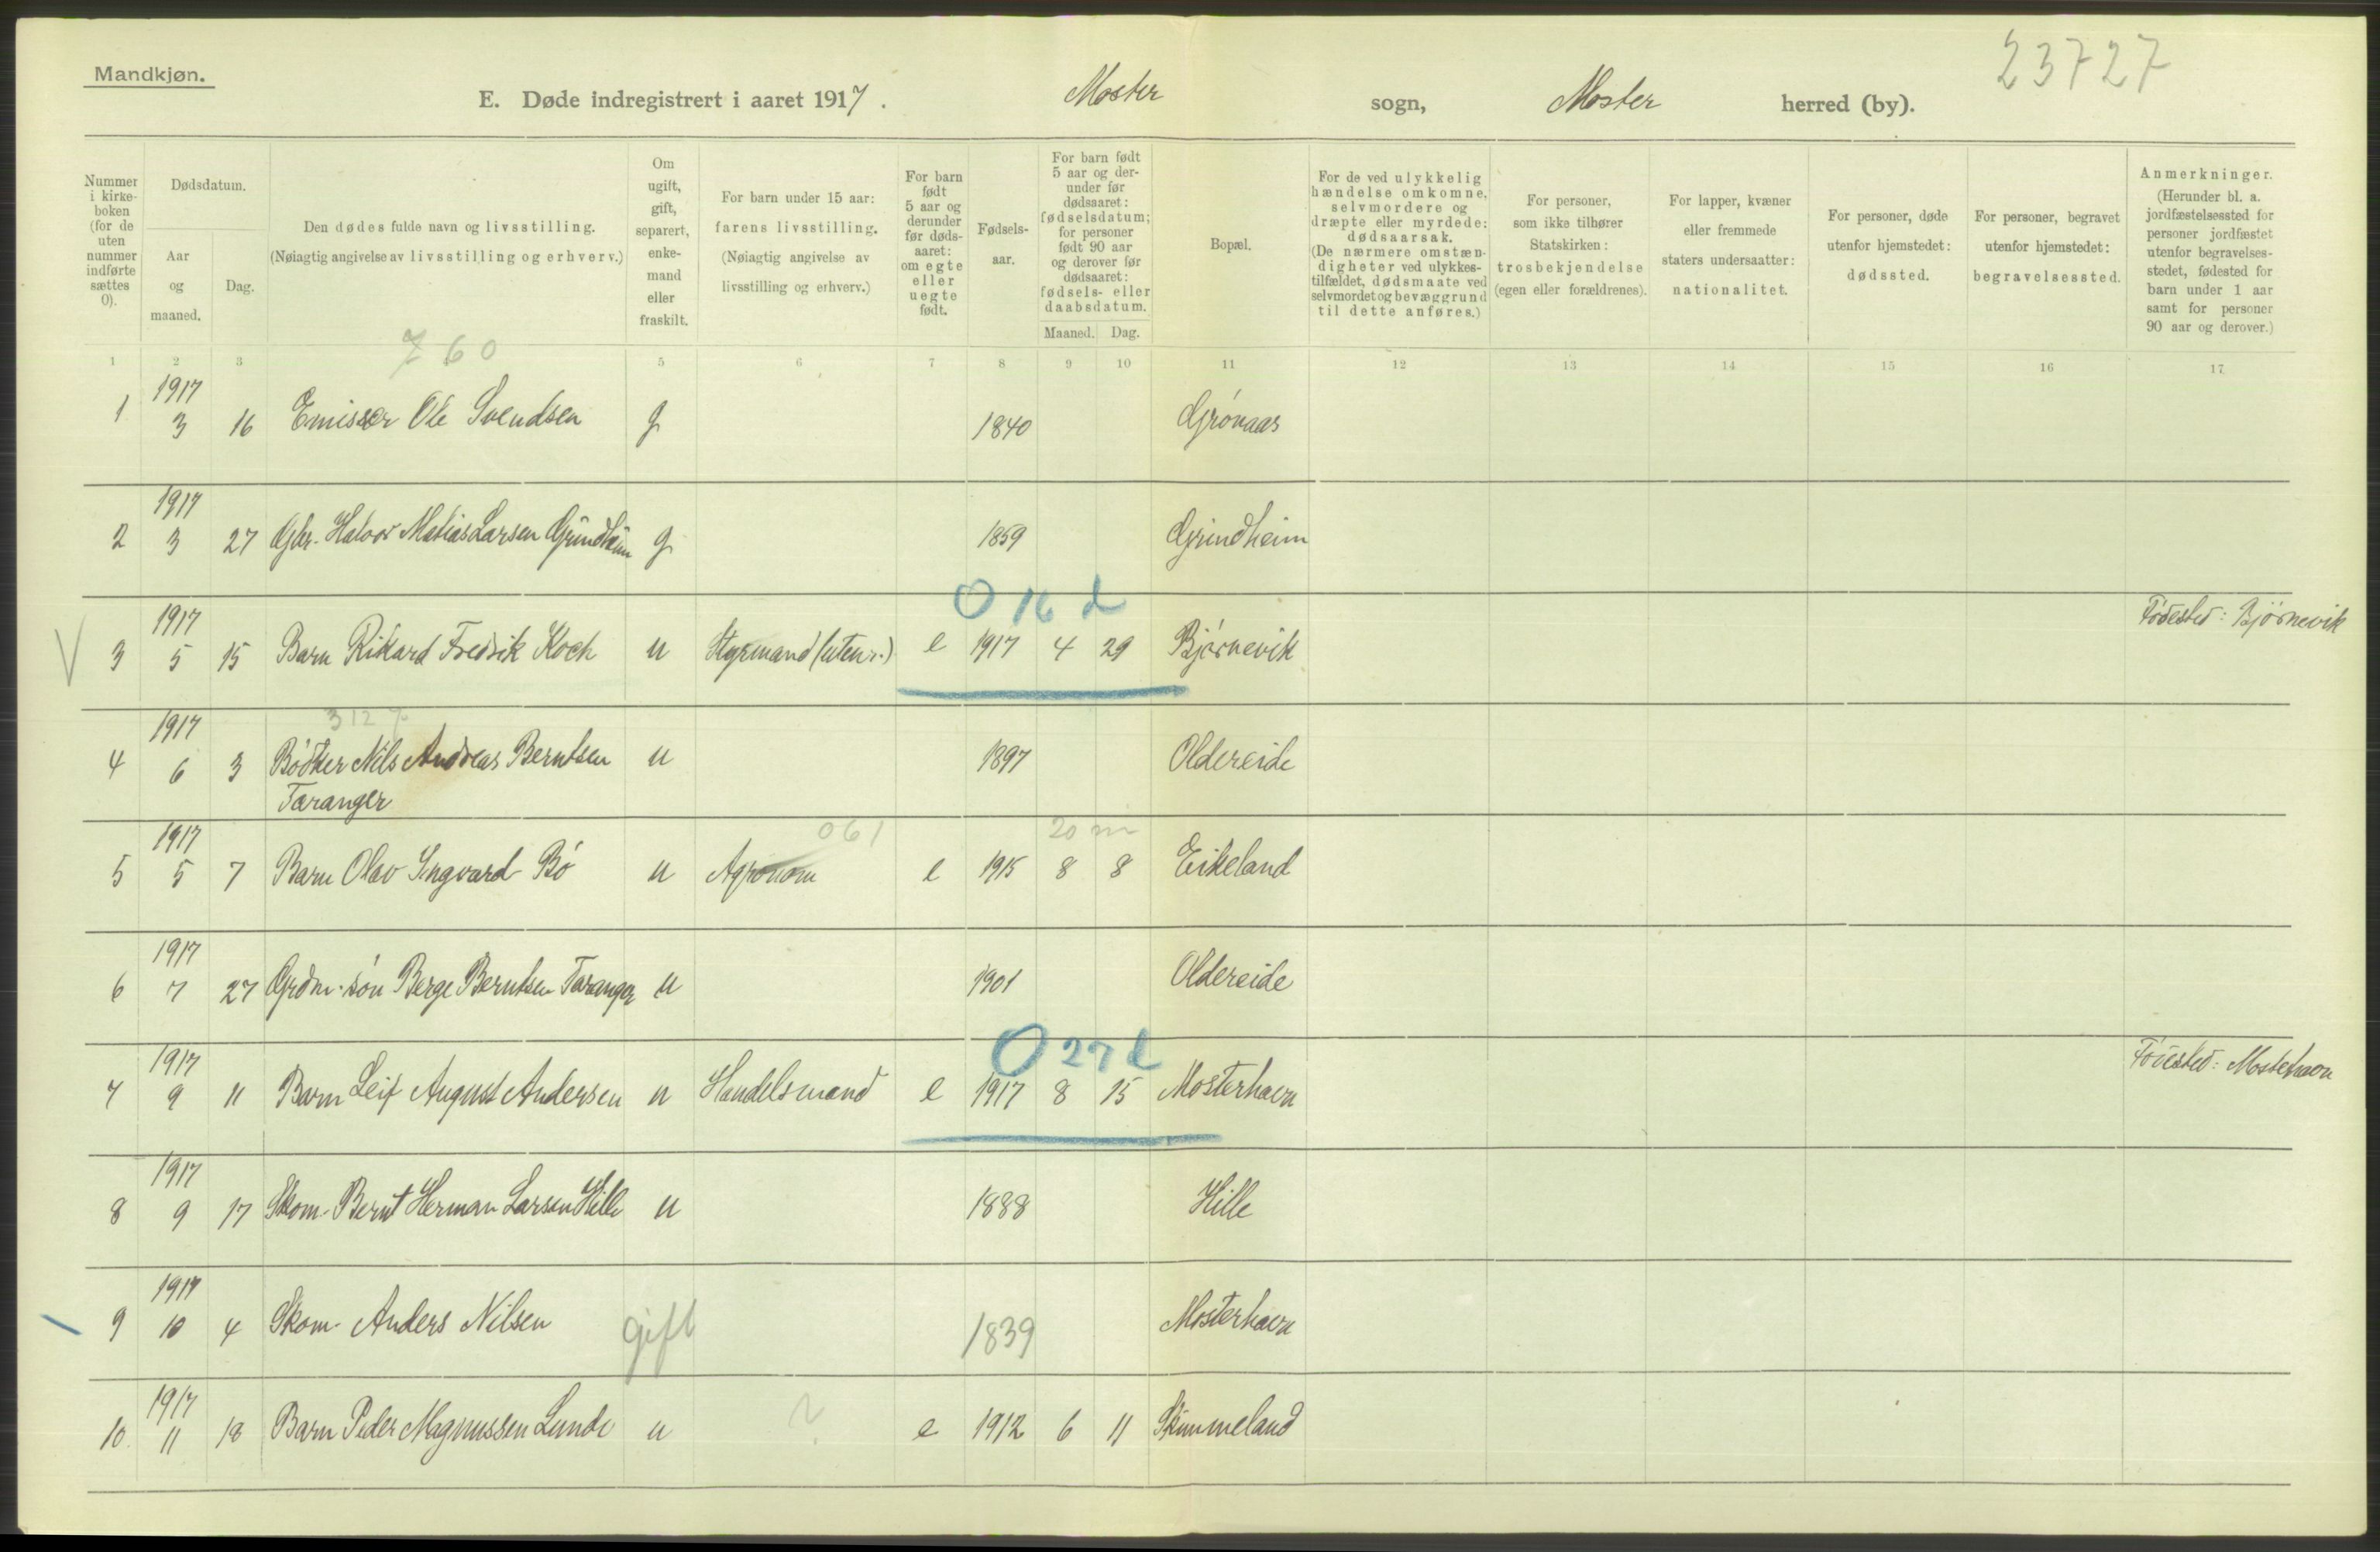 23727
Mandkjøn.
E. Døde indregistrert i aaret 1917. Moster sogn, Moster herred (by).
Nummer i kirke-boken (for de uten nummer indførte sættes 0).
Dødsdatum.
Aar og maaned.
Dag.
Den dødes fulde navn og livsstilling.
(Nøiagtig angivelse av livsstilling og erhverv.)
Om ugift, gift, separert, enke-mand eller fraskilt.
For barn under 15 aar: farens livsstilling.
(Nøiagtig angivelse av livsstilling og erhverv.)
For barn født 5 aar og derunder før døds-aaret: om egte eller uegte født.
Fødsels-aar.
For barn født 5 aar og der-under før dødsaaret: fødselsdatum; for personer født 90 aar og derover før dødsaaret: fødsels- eller daabsdatum.
Maaned. Dag.
Bopæl.
For de ved ulykkelig hændelse omkomne, selvmordere og dræpte eller myrdede: dødsaarsak.
(De nærmere omstæn-digheter ved ulykkes-tilfældet, dødsmaate ved selvmordet og bevæggrund til dette anføres.)
For personer, som ikke tilhører Statskirken: trosbekjendelse (egen eller forældrenes).
For lapper, kvæner eller fremmede staters undersaatter: nationalitet.
For personer, døde utenfor hjemstedet: dødssted.
For personer, begravet utenfor hjemstedet: begravelsessted.
Anmerkninger.
(Herunder bl. a. jordfæstelsessted for personer jordfæstet utenfor begravelses-stedet, fødested for barn under 1 aar samt for personer 90 aar og derover.)
760
1 2 3 5 6 7 8 9 10 11 12 13 14 15 16 17
1 1917 3 16 Emissær Ole Svendsen g 1840 Grønaas
2 1917 3 27 Gbr. Halvor Matias Larsen Grindheim g 1859 Grindheim
0 16 d
V 3 1917 5 15 Barn Rikard Fredrik Koch u Styrmand (utenr.) e 1917 4 29 Bjørnevik Fødested: Bjørnevik
312
4 1917 6 3 Bødker Nils Andreas Berntsen u 1897 Oldereide
Taranger
061 20 m
5 1917 5 7 Barn Olav Ingvard Bø u Agronom e 1915 8 8 Eikeland
6 1917 7 27 Grdm. søn Berge Berntsen Taranger u 1901 Oldereide
0 27 d
7 1917 9 11 Barn Leif August Andersen u Handelsmand e 1917 8 15 Mosterhavn Fødested: Mosterhavn
8 1917 9 17 Skom. Bernt Herman Larsen Hille u 1888 Hille
9 1917 10 4 Skom. Anders Nilsen gift 1839 Mosterhavn
10. 1917 11 18 Barn Peder Magnussen Lunde u ? e 1912 6 11 Skimmeland